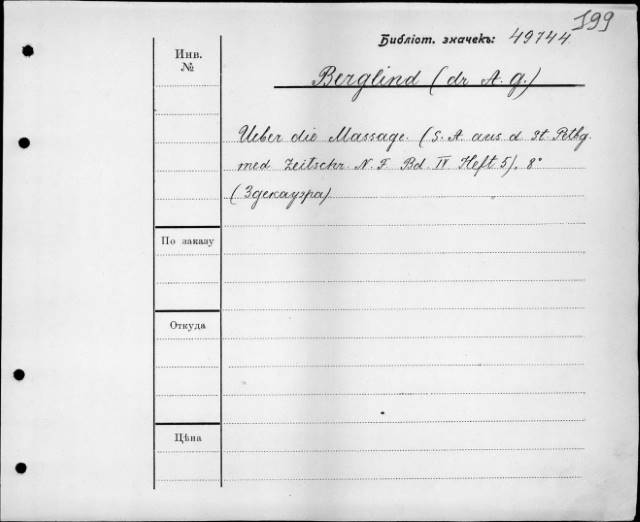 199
Библіот. значекъ: 49744
Инв.
№
Berglind (dr A. g.)
Ueber die Massage. (S. A. aus d St. Petbg.
med Zeitschr. N. F. Bd. IV Heft 5). 8°
(Здекауэра)
По заказу
Откуда
Цѣна